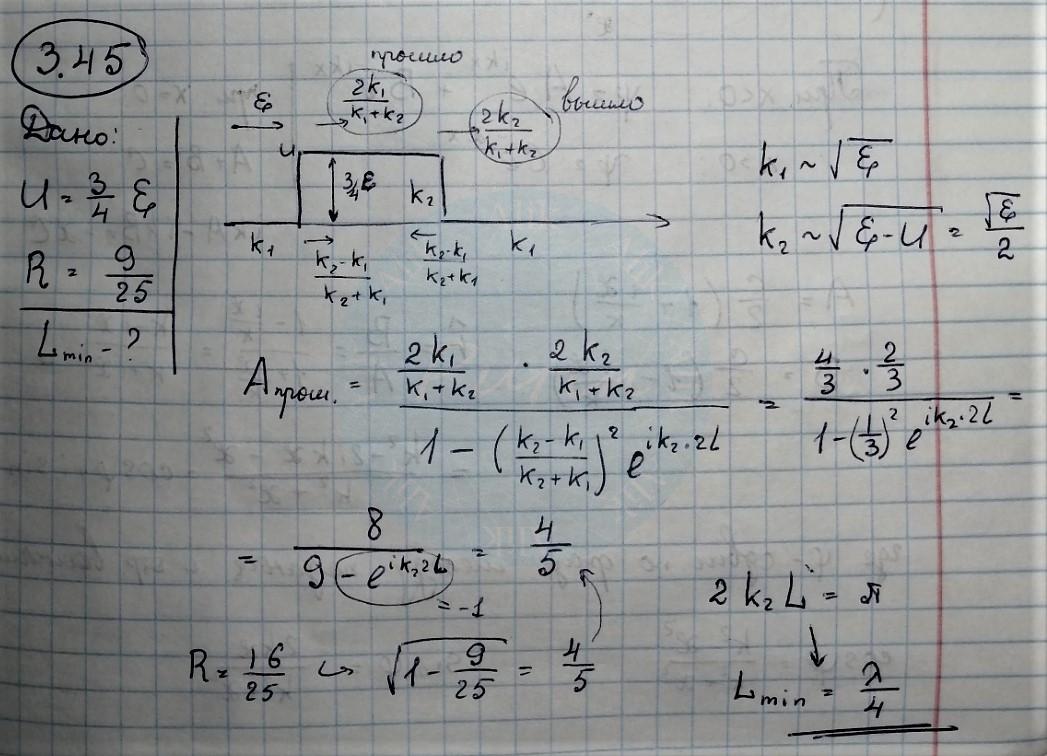 3.45
Дано:
U = 3/4 ℰ
R = 9/25
L min - ?
прошло
ℰ → → 2k₁/(k₁+k₂)
вышло
→ 2k₂/(k₁+k₂)
U
3/4 ℰ k₂
k₁ → (k₂-k₁)/(k₂+k₁) ← (k₂-k₁)/(k₂+k₁) k₁
k₁ ~ √ℰ
k₂ ~ √(ℰ-U) = √ℰ/2
A прош. = (2k₁/(k₁+k₂) · 2k₂/(k₁+k₂)) / (1 - ((k₂-k₁)/(k₂+k₁))² e^(ik₂·2L)) = (4/3 · 2/3) / (1-(1/3)² e^(ik₂·2L)) =
= 8/(9 - e^(ik₂2L)) = 4/5
= -1
2 k₂ L = π
R = 16/25 ↪ √(1 - 9/25) = 4/5
L min = λ/4